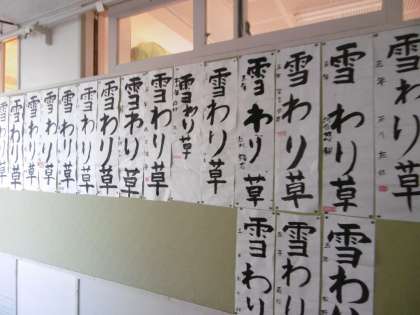 雪わり草
雪わり草
雪わり草
雪わり草
雪わり草
雪わり草
雪わり草
雪わり草
雪わり草
雪わり草
雪わり草
雪わり草
雪わり草
雪わり草
雪わり
雪わり
雪わり